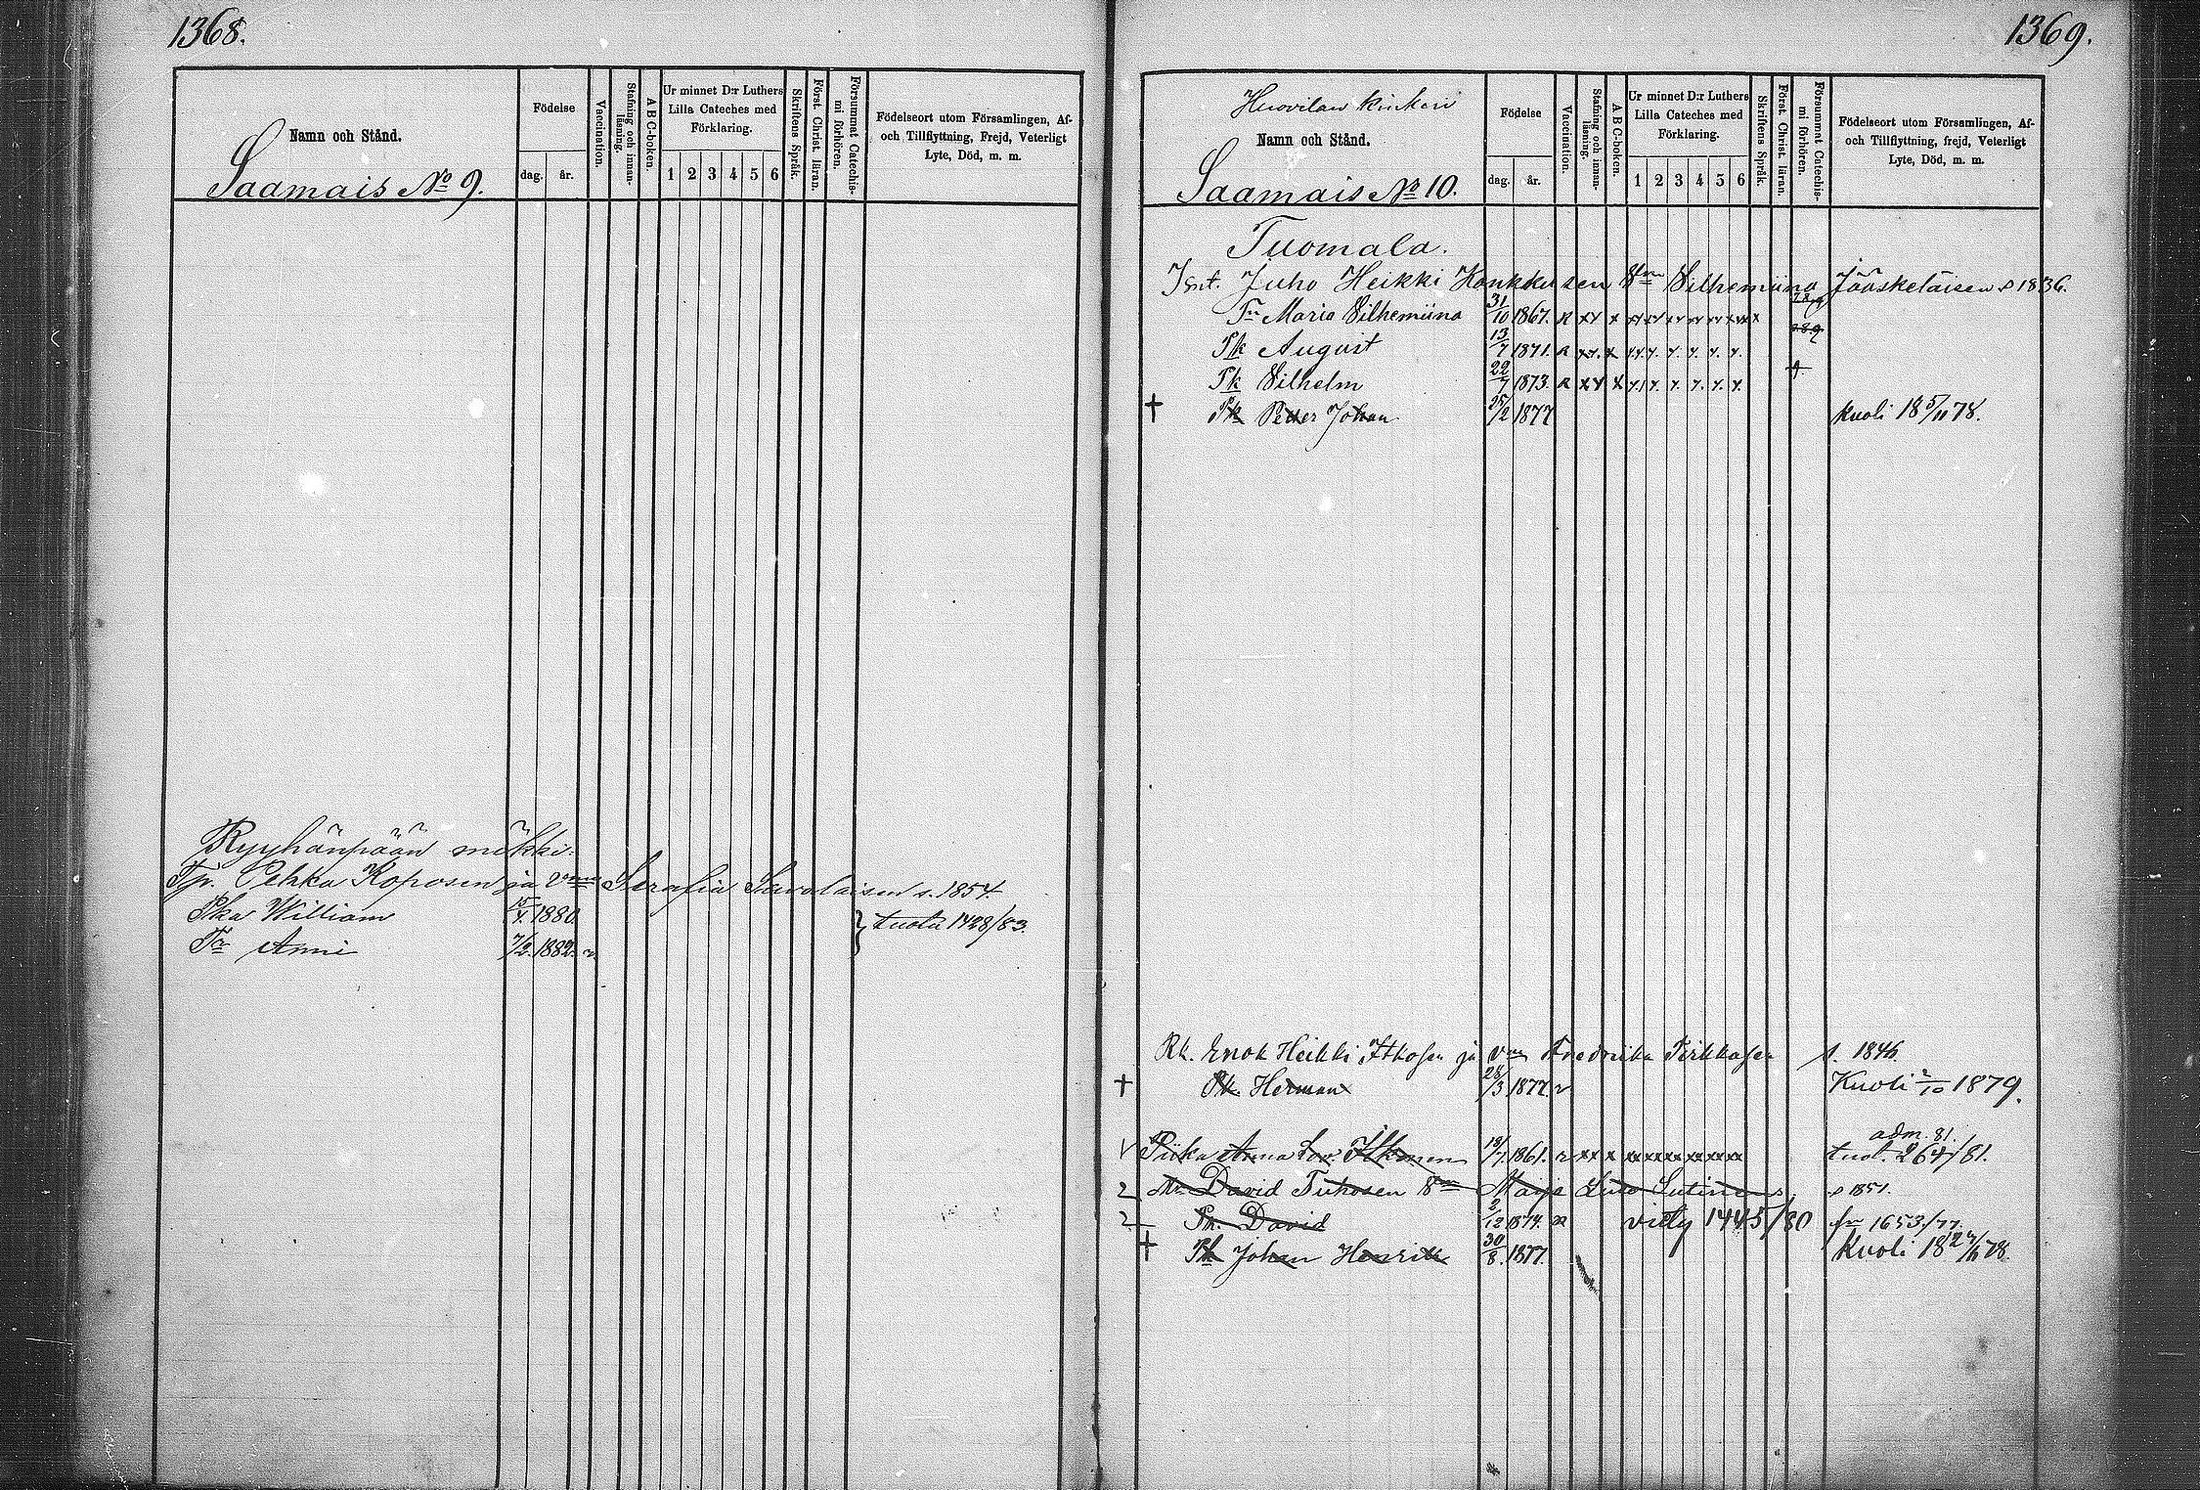 1368.
Namn och Stånd.
Saamais No 9.
Födelse
dag.
år.
Vaccination.
Stafning och innan-
läsning.
A B C-boken.
Ur minnet D:r Luthers
Lilla Cateches med
Förklaring.
1 2 3 4 5 6
Skriftens Språk.
Först. Christ. läran.
Försummat Catechis-
mi förhören.
Födelseort utom Församlingen, Af-
och Tillflyttning, Frejd, Veterligt
Lyte, Död, m. m.
Ryyhänpään mökki.
Tp. Pekka Koposen ja vmo Serafia Savolaisen s. 1854.
Pka William 15/4. 1880.
Tr Anni 7/2. 1882.
tuotu 1428/83.
1369.
Huovilan kinkeri
Namn och Stånd.
Saamais No 10.
Födelse
dag.
år.
Vaccination.
Stafning och innan-
läsning.
A B C-boken.
Ur minnet D:r Luthers
Lilla Cateches med
Förklaring.
1 2 3 4 5 6
Skriftens Språk.
Först. Christ. läran.
Försummat Catechis-
mi förhören.
Födelseort utom Församlingen, Af-
och Tillflyttning, frejd, Veterligt
Lyte, Död, m. m.
Tuomala.
Juho Heikki Konkkusen Vilhemiina Jääskeläisen s 1836.
Tr Maria Vilhemiina 31/10 1867.
Pk August 13/7 1871.
Pk Vilhelm 22/7 1873.
† Pk Petter Johan 25/2 1877 kuoli 18 5/11 78.
Rk. Enok Heikki Itkosen ja vmo Fredriika Pirkkosen s. 1846.
† Pk. Herman 28/3 1877. Kuoli 2/10 1879.
adm. 81.
Piika Anna Lov. 1861. tuot. 264/81.
David Tuhosen Maija Liso Lutinen s 1851.
2 Pk. David 2/12 1874. viety 1445/80 1653/77.
† Pk Johan Henrik 30/8. 1877. Kuoli 18 78.